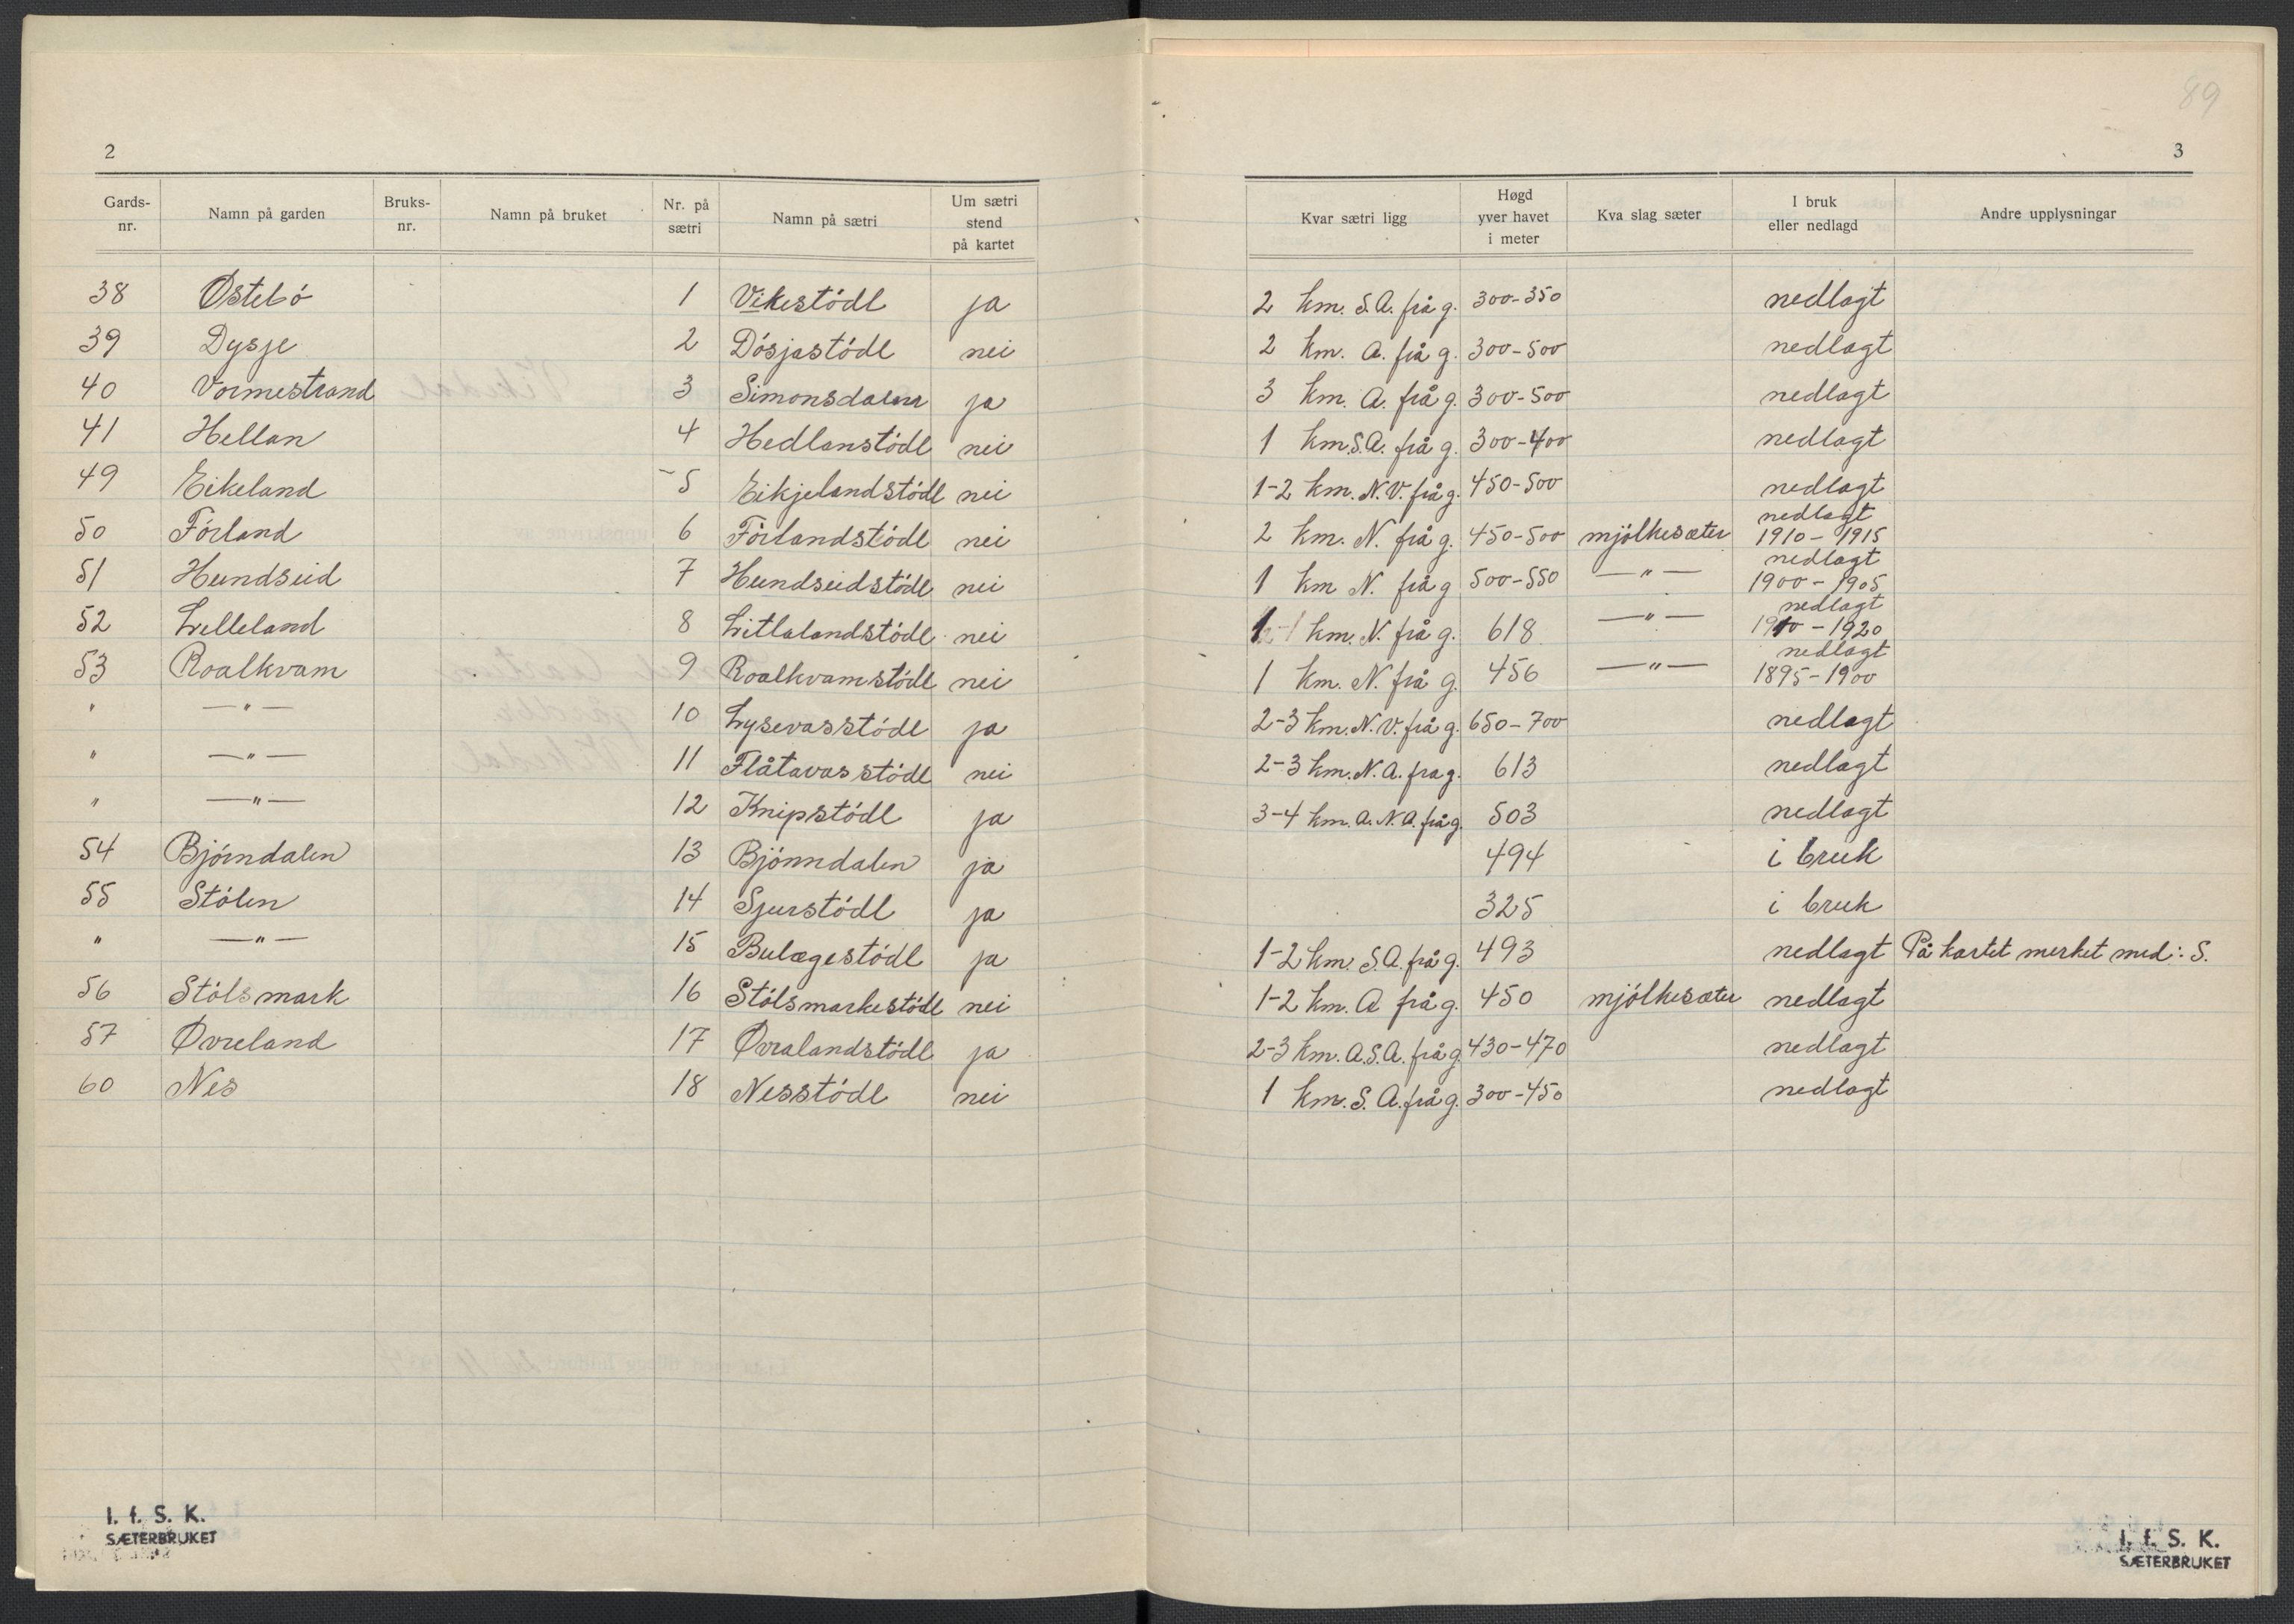 89
2
3
Gards-nr. Namn på garden Bruks-nr. Namn på bruket Nr. på sætri Namn på sætri Um sætri stend på kartet Kvar sætri ligg Høgd yver havet i meter Kva slag sæter I bruk eller nedlagd Andre upplysningar
38 Østebó 1 Vikestódl ja 2 km. S.A. frå g. 300-350 nedlagt
39 Dysje 2 Dósjastódl nei 2 km. A. frå g. 300-500 nedlagt
40 Vormestrand 3 Simonsdalen ja 3 km. A. frå g. 300-500 nedlagt
41 Hellan 4 Hedlanstódl nei 1 km. S.A. frå g. 300-400 nedlagt
49 Eikeland 5 Eikjelandstódl nei 1-2 km. N.V. frå g. 450-500 nedlagt
50 Fórland 6 Fórlandstódl nei 2 km. N. frå g. 450-500 mjólkesæter nedlagt 1910-1915
51 Hundseid 7 Hundseidstódl nei 1 km N. frå g 500-550 —"— nedlagt 1900-1905
52 Lilleland 8 Litlalandstódl nei 1 km. N. frå g. 618 —"— nedlagt 1910-1920
53 Roalkvam 9 Roalkvamstódl nei 1 km. N. frå g. 456 —"— nedlagt 1895-1900
" —"— 10 Lysevasstódl ja 2-3 km. N.V. frå g. 650-700 nedlagt
" —"— 11 Flåtavasstódl nei 2-3 km. N.A. fra g. 613 nedlagt
" —"— 12 Knipstódl ja 3-4 km. A.N.A. frå g. 503 nedlagt
54 Bjórndalen 13 Bjónndalen ja 494 i bruk
55 Stólen 14 Sjurstódl ja 325 i bruk
" —"— 15 Bulægestódl ja 1-2 km. S.A. frå g. 493 nedlagt På kartet merket med: S.
56 Stólsmark 16 Stólsmarkestódl nei 1-2 km. A frå g. 450 mjólkesæter nedlagt
57 Øvreland 17 Øvralandstódl ja 2-3 km. A.S.A. frå g. 430-470 nedlagt
60 Nes 18 Nesstódl nei 1 km. S.A. frå g. 300-450 nedlagt
I. f. S. K.
SÆTERBRUKET
I. f. S. K.
SÆTERBRUKET